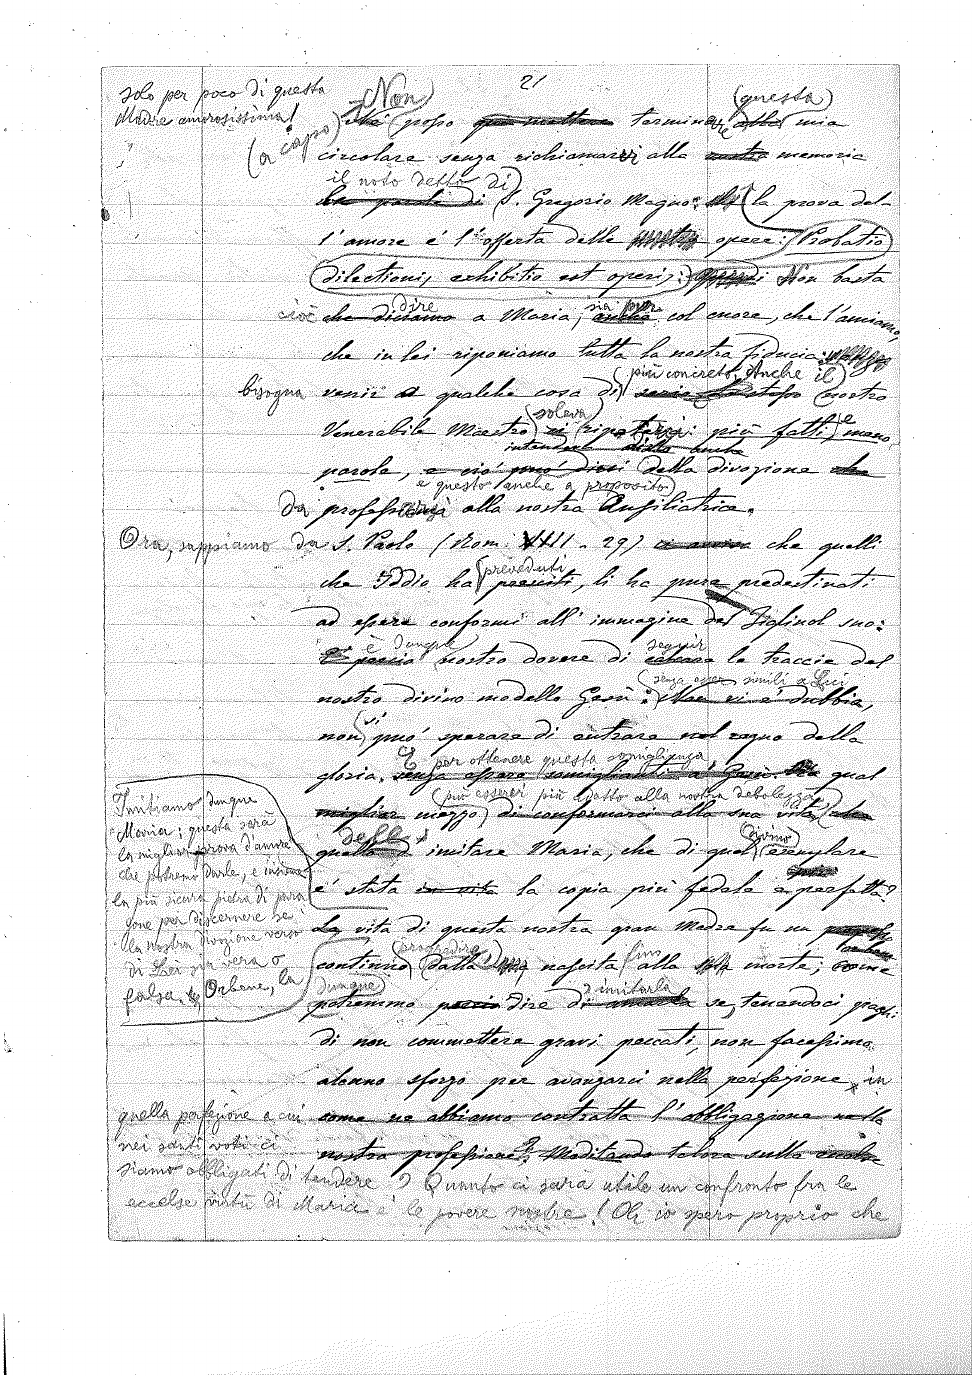 21
solo per poco di questa
Madre amorosissima!
(a capo)
Non posso terminare questa mia
circolare senza richiamarvi alla memoria
il noto detto di
S. Gregorio Magno: la prova del-
l'amore é l'offerta delle opere: Probatio
dilectionis, exhibitio est operis: Non basta
cioè dire a Maria, sia pure col cuore, che l'amiamo,
che in lei riponiamo tutta la nostra fiducia:
bisogna venir a qualche cosa di più concreto. Anche il nostro
Venerabile Maestro soleva ripeterci più fatti e meno
parole, e questo anche a proposito della divozione
da professarsi alla nostra Ausiliatrice.
Ora, sappiamo da S. Paolo (Rom. VIII - 29) che quelli
che Iddio ha preveduti, li ha pure predestinati
ad essere conformi all'immagine del Figliuol suo:
è dunque nostro dovere di seguir le traccie del
nostro divino modello Gesù: senza esser simili a Lui
non si può sperare di entrare nel regno della
gloria. E per ottenere questa somiglianza qual
mezzo può esserci più adatto alla nostra debolezza
quello d'imitare Maria, che di quel divino esemplare
é stata la copia più fedele e perfetta?
Imitiamo dunque
Maria; questa sarà
la miglior prova d'amore
che potremo darle, e insieme
la più sicura pietra di para
gone per discernere se
la nostra divozione verso
di Lei sia vera o
falsa. Orbene, la
La vita di questa nostra gran Madre fu un
continuo progredire dalla nascita fino alla morte; come
potremmo dunque dire d'imitarla se, tenendoci paghi
di non commettere gravi peccati, non facessimo
alcuno sforzo per avanzarci nella perfezione, in
quella perfezione a cui
nei santi voti ci
siamo obbligati di tendere? Quanto ci sarà utile un confronto fra le
come ne abbiamo contratta l'obbligazione nella
nostra professione? Meditando talora sulle
eccelse virtù di Maria e le povere nostre! Oh io spero proprio che